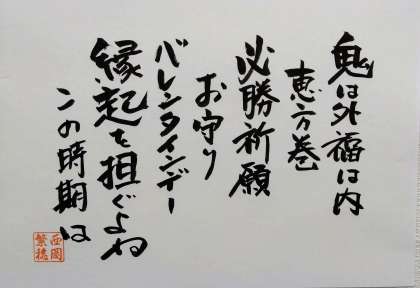 鬼は外福は内
恵方巻
必勝祈願
お守り
バレンタインデー
縁起を担ぐよね
この時期は
西岡
繁穂